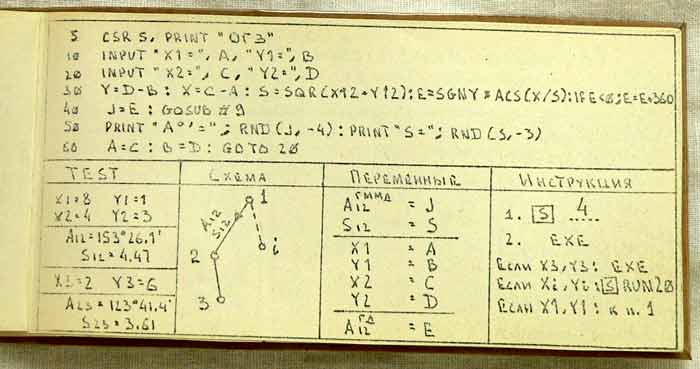 5 CSR S, PRINT "ОГЗ"
10 INPUT "X1=", A, "Y1=", B
20 INPUT "X2=", C, "Y2=", D
30 Y=D-B: X=C-A: S=SQR(X↑2+Y↑2):E=SGNY*ACS(X/S):IFE<0;E=E+360
40 J=E: GOSUB #9
50 PRINT "A°'="; RND(J,-4): PRINT "S="; RND(S,-3)
60 A=C: B=D: GOTO 20
TEST
X1=8 Y1=1
X2=4 Y2=3
A12=153°26.1'
S12=4.47
X3=2 Y3=6
A23=123°41.4'
S23=3.61
СХЕМА
1
A12
S12
2
i
3
ПЕРЕМЕННЫЕ
A12 ГММД = J
S12 = S
X1 = A
Y1 = B
X2 = C
Y2 = D
A12 ГД = E
ИНСТРУКЦИЯ
1. S 4
2. EXE
ЕСЛИ X3,Y3: EXE
ЕСЛИ Xi, Yi: S RUN20
ЕСЛИ X1,Y1: К П. 1